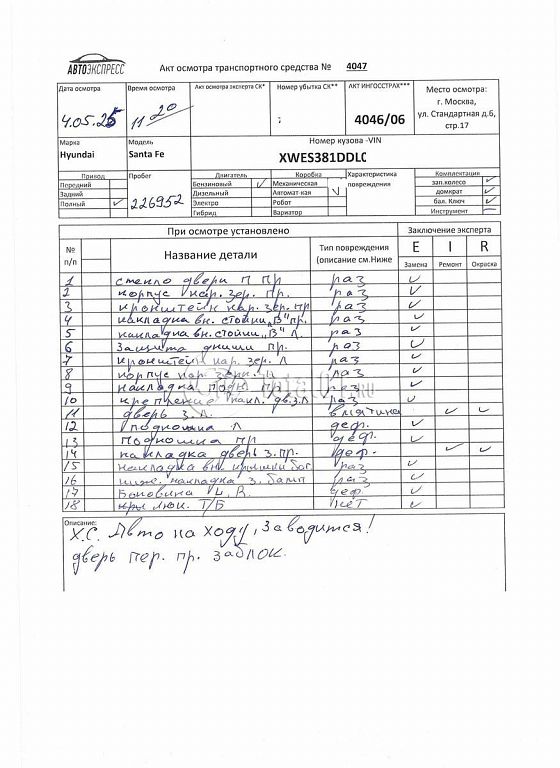 АВТОЭКСПРЕСС
Акт осмотра транспортного средства № 4047
Дата осмотра
4.05.25
Время осмотра
11 20
Акт осмотра эксперта СК*
Номер убытка СК**
АКТ ИНГОССТРАХ***
4046/06
Место осмотра:
г. Москва,
ул. Стандартная д.6,
стр.17
Марка
Hyundai
Модель
Santa Fe
Номер кузова -VIN
XWES381DDLC
Привод
Передний
Задний
Полный ✓
Пробег
226952
Двигатель
Бензиновый ✓
Дизельный
Электро
Гибрид
Коробка
Механическая
Автомат-кая ✓
Робот
Вариатор
Характеристика
повреждения
Комплектация
зап.колесо ✓
домкрат ✓
бал. Ключ ✓
Инструмент
При осмотре установлено
Заключение эксперта
№ п/п
Название детали
Тип повреждения
(описание см.Ниже
E I R
Замена Ремонт Окраска
1 стекло двери П пр раз ✓
2 корпус нар. зер. пр. раз ✓
3 кронштейн нар. зер. пр раз ✓
4 накладка вн. стойки "В" пр. раз ✓
5 накладка вн. стойки "В" л. раз ✓
6 Защита днища пр. раз ✓
7 кронштейн нар. зер. л раз ✓
8 корпус нар. зерк. л раз ✓
9 накладка подн. пр раз ✓
10 крепление накл. дв.з.л раз ✓
11 дверь з.л. вмятина ✓ ✓
12 подножка л деф. ✓
13 подножка пр деф. ✓
14 накладка дверь з.пр. деф. ✓ ✓
15 накладка вн. крышки баг раз ✓
16 ниж. накладка з. бамп раз ✓
17 Боковина L, R. деф. ✓
18 крл люк. Т/Б нет ✓
Описание:
Х.С. Авто на ходу, Заводится!
дверь пер. пр. заблок.